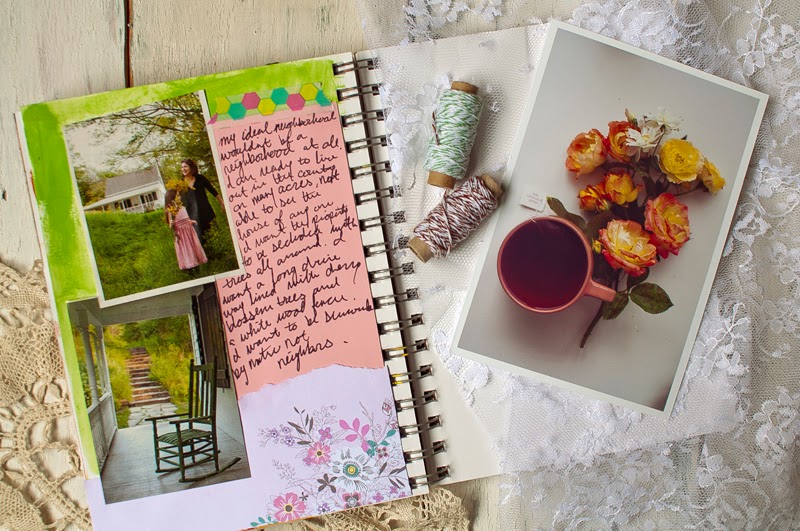 my ideal neighborhood
wouldn't be a
neighborhood at all
I am ready to live
out in the country
on many acres, not
able to see the
house of anyone.
I want my property
to be secluded with
trees all around. I
want a long drive
way lined with cherry
blossom trees and
a white wood fence.
I want to be
by nature not
neighbors.